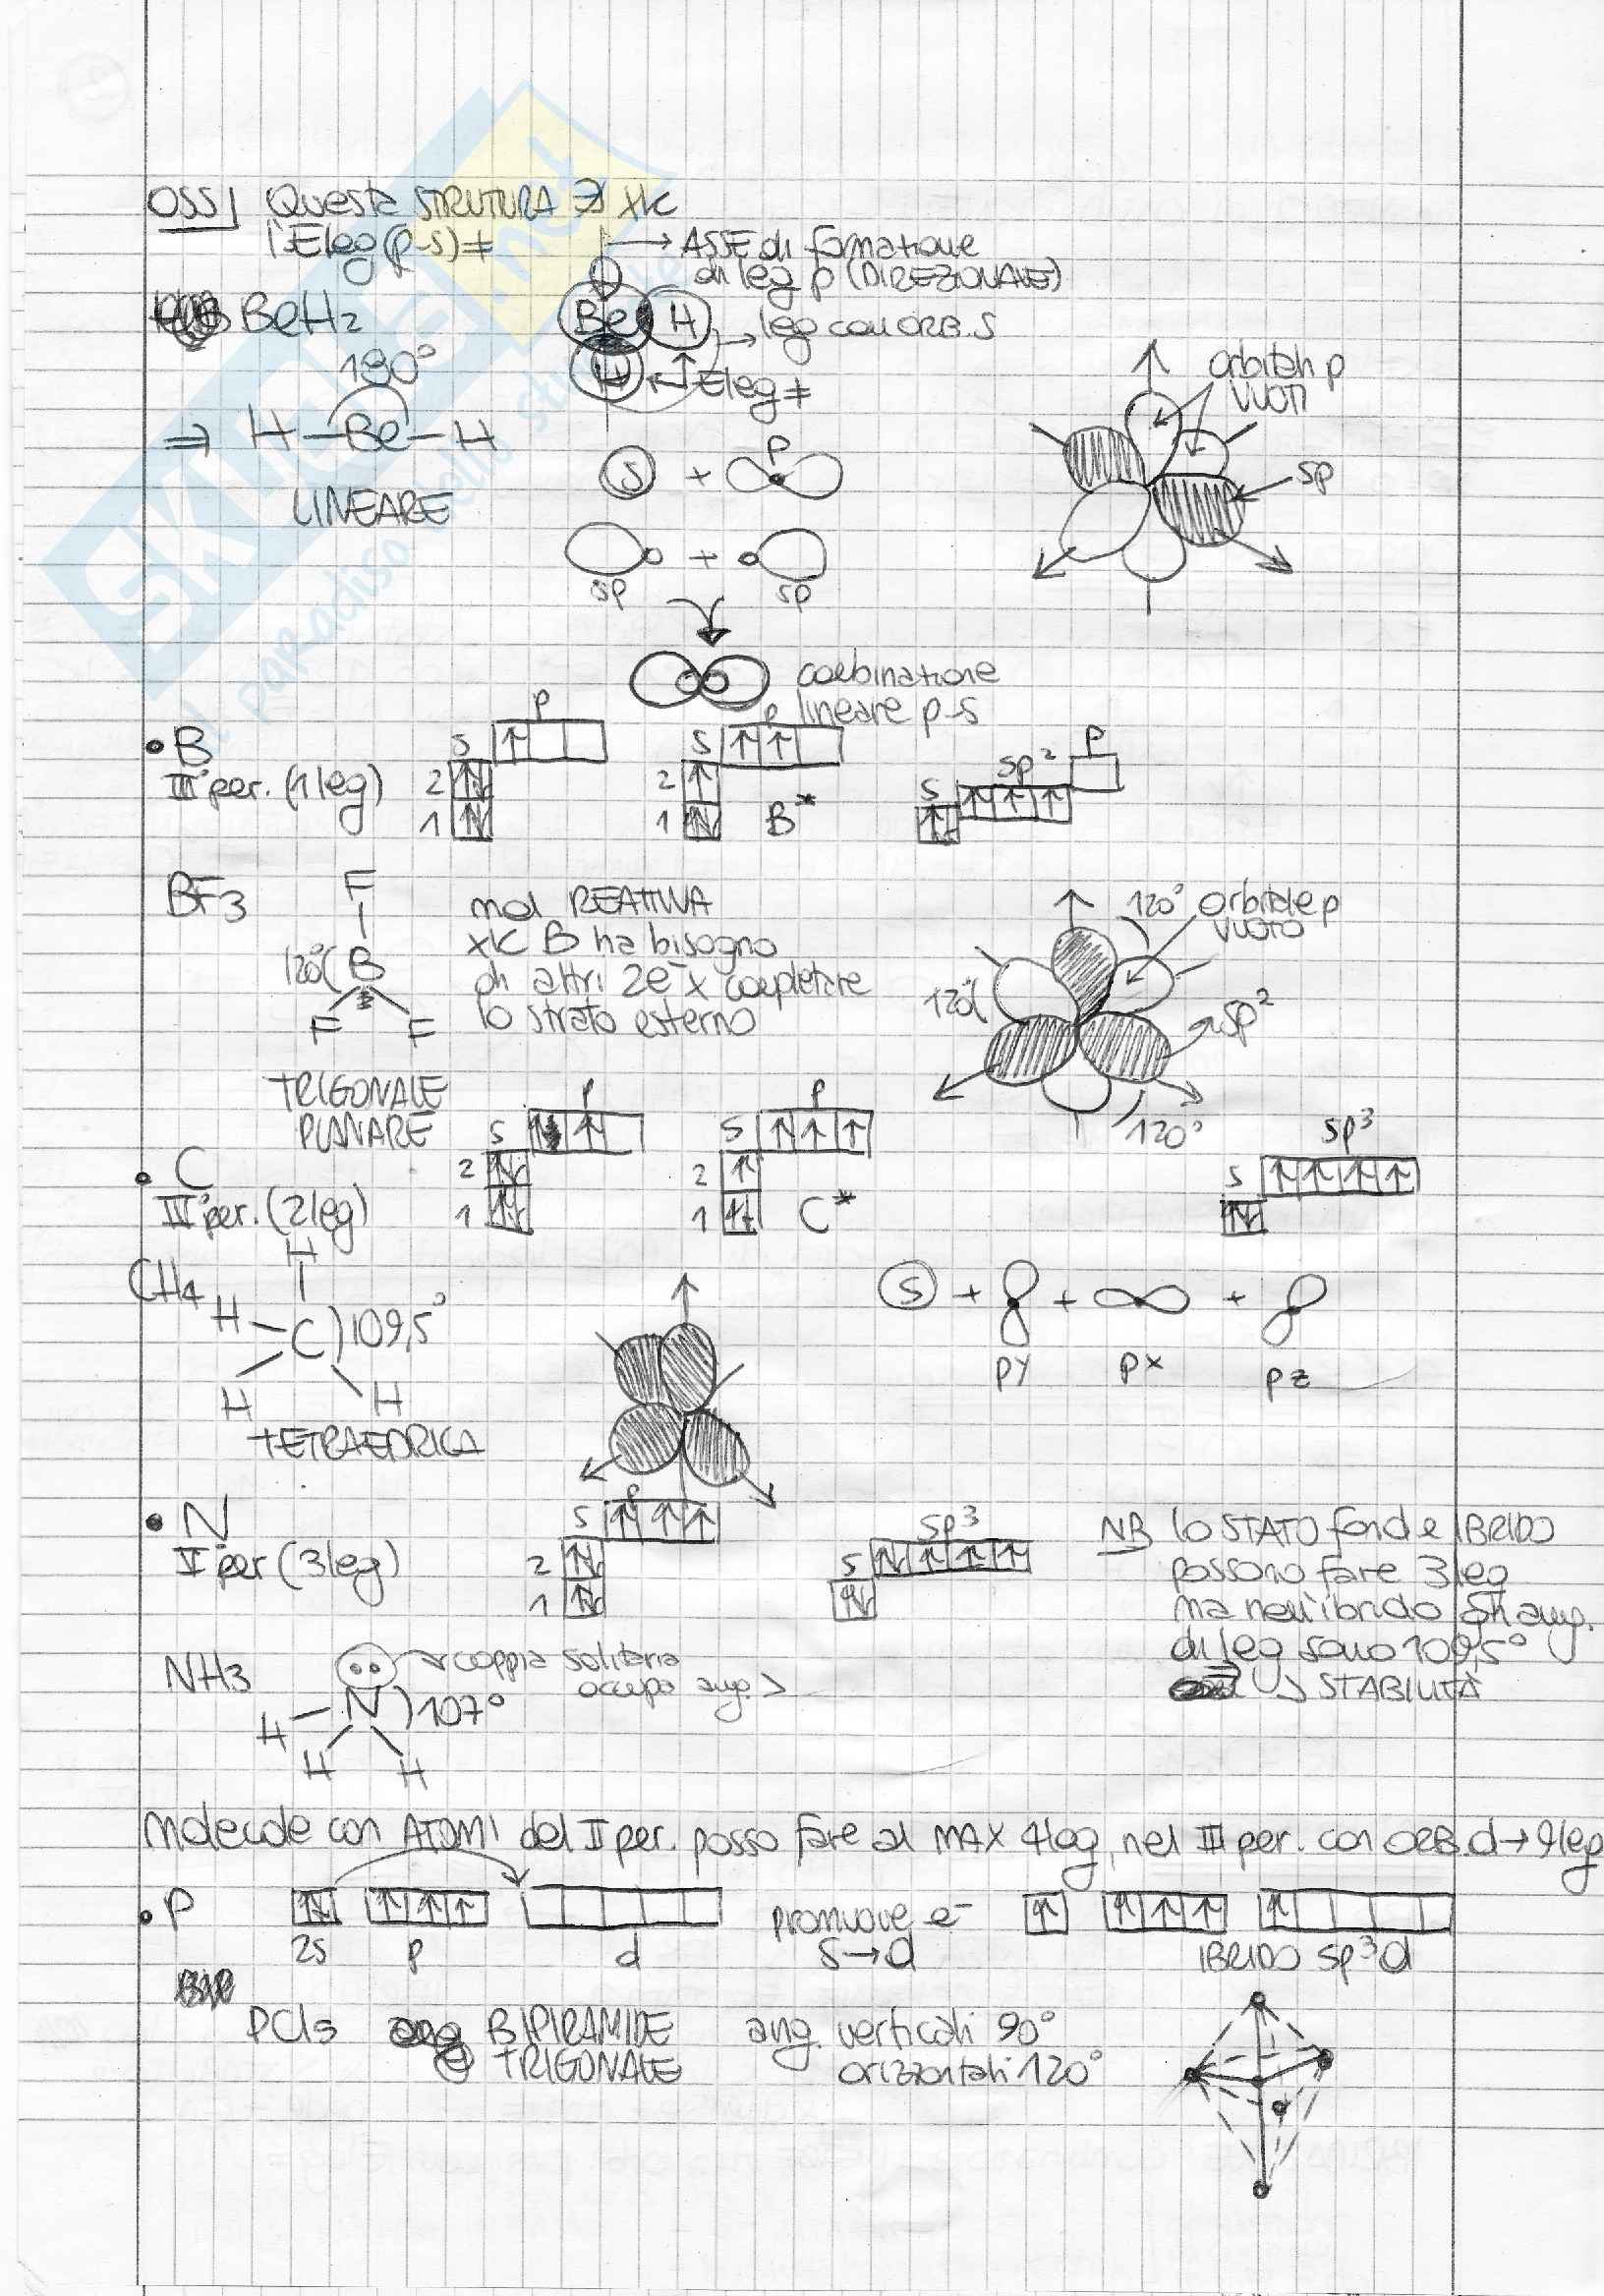 OSS| Questa STRUTURA ∄ xk
l'Eleg(p-s) ≠
→ ASSE di formazione
di leg p (DIREZIONALE)
BeH2
Be H
→ leg con ORB. S
H
Eleg ≠
180°
⇒ H—Be—H
LINEARE
orbitali p
VUOTI
sp
S + p
sp + sp
combinazione
lineare p-s
• B
III° per. (1 leg)
s p
2
1
s p
2
1 B*
s sp² p
BF3
F
120° B
F F
mol REATTIVA
xk B ha bisogno
di altri 2e⁻ x completare
lo strato esterno
120° orbitale p
VUOTO
120°
sp²
120°
TRIGONALE
PLANARE
• C
III° per. (2 leg)
s p
2
1
s p
2
1 C*
s sp³
CH4
H
H C ) 109,5°
H H
TETRAEDRICA
S + + +
py px pz
• N
V per (3 leg)
s p
2
1
s sp³
NB lo STATO fond e IBRIDO
possono fare 3 leg
ma nell'ibrido gli ang.
di leg sono 109,5°
↳ STABILITÀ
NH3
coppia solitaria
occupa ang. >
N ) 107°
H H H
Molecole con ATOMI del II per. posso fare al MAX 4 leg, nel III per. con ORB. d → 9 leg
• P
2s p d
promuove e⁻
s → d
IBRIDO sp³d
PCl5 BIPIRAMIDE
TRIGONALE
ang. verticali 90°
orizzontali 120°
SKUOLA.net
il paradiso dello studente